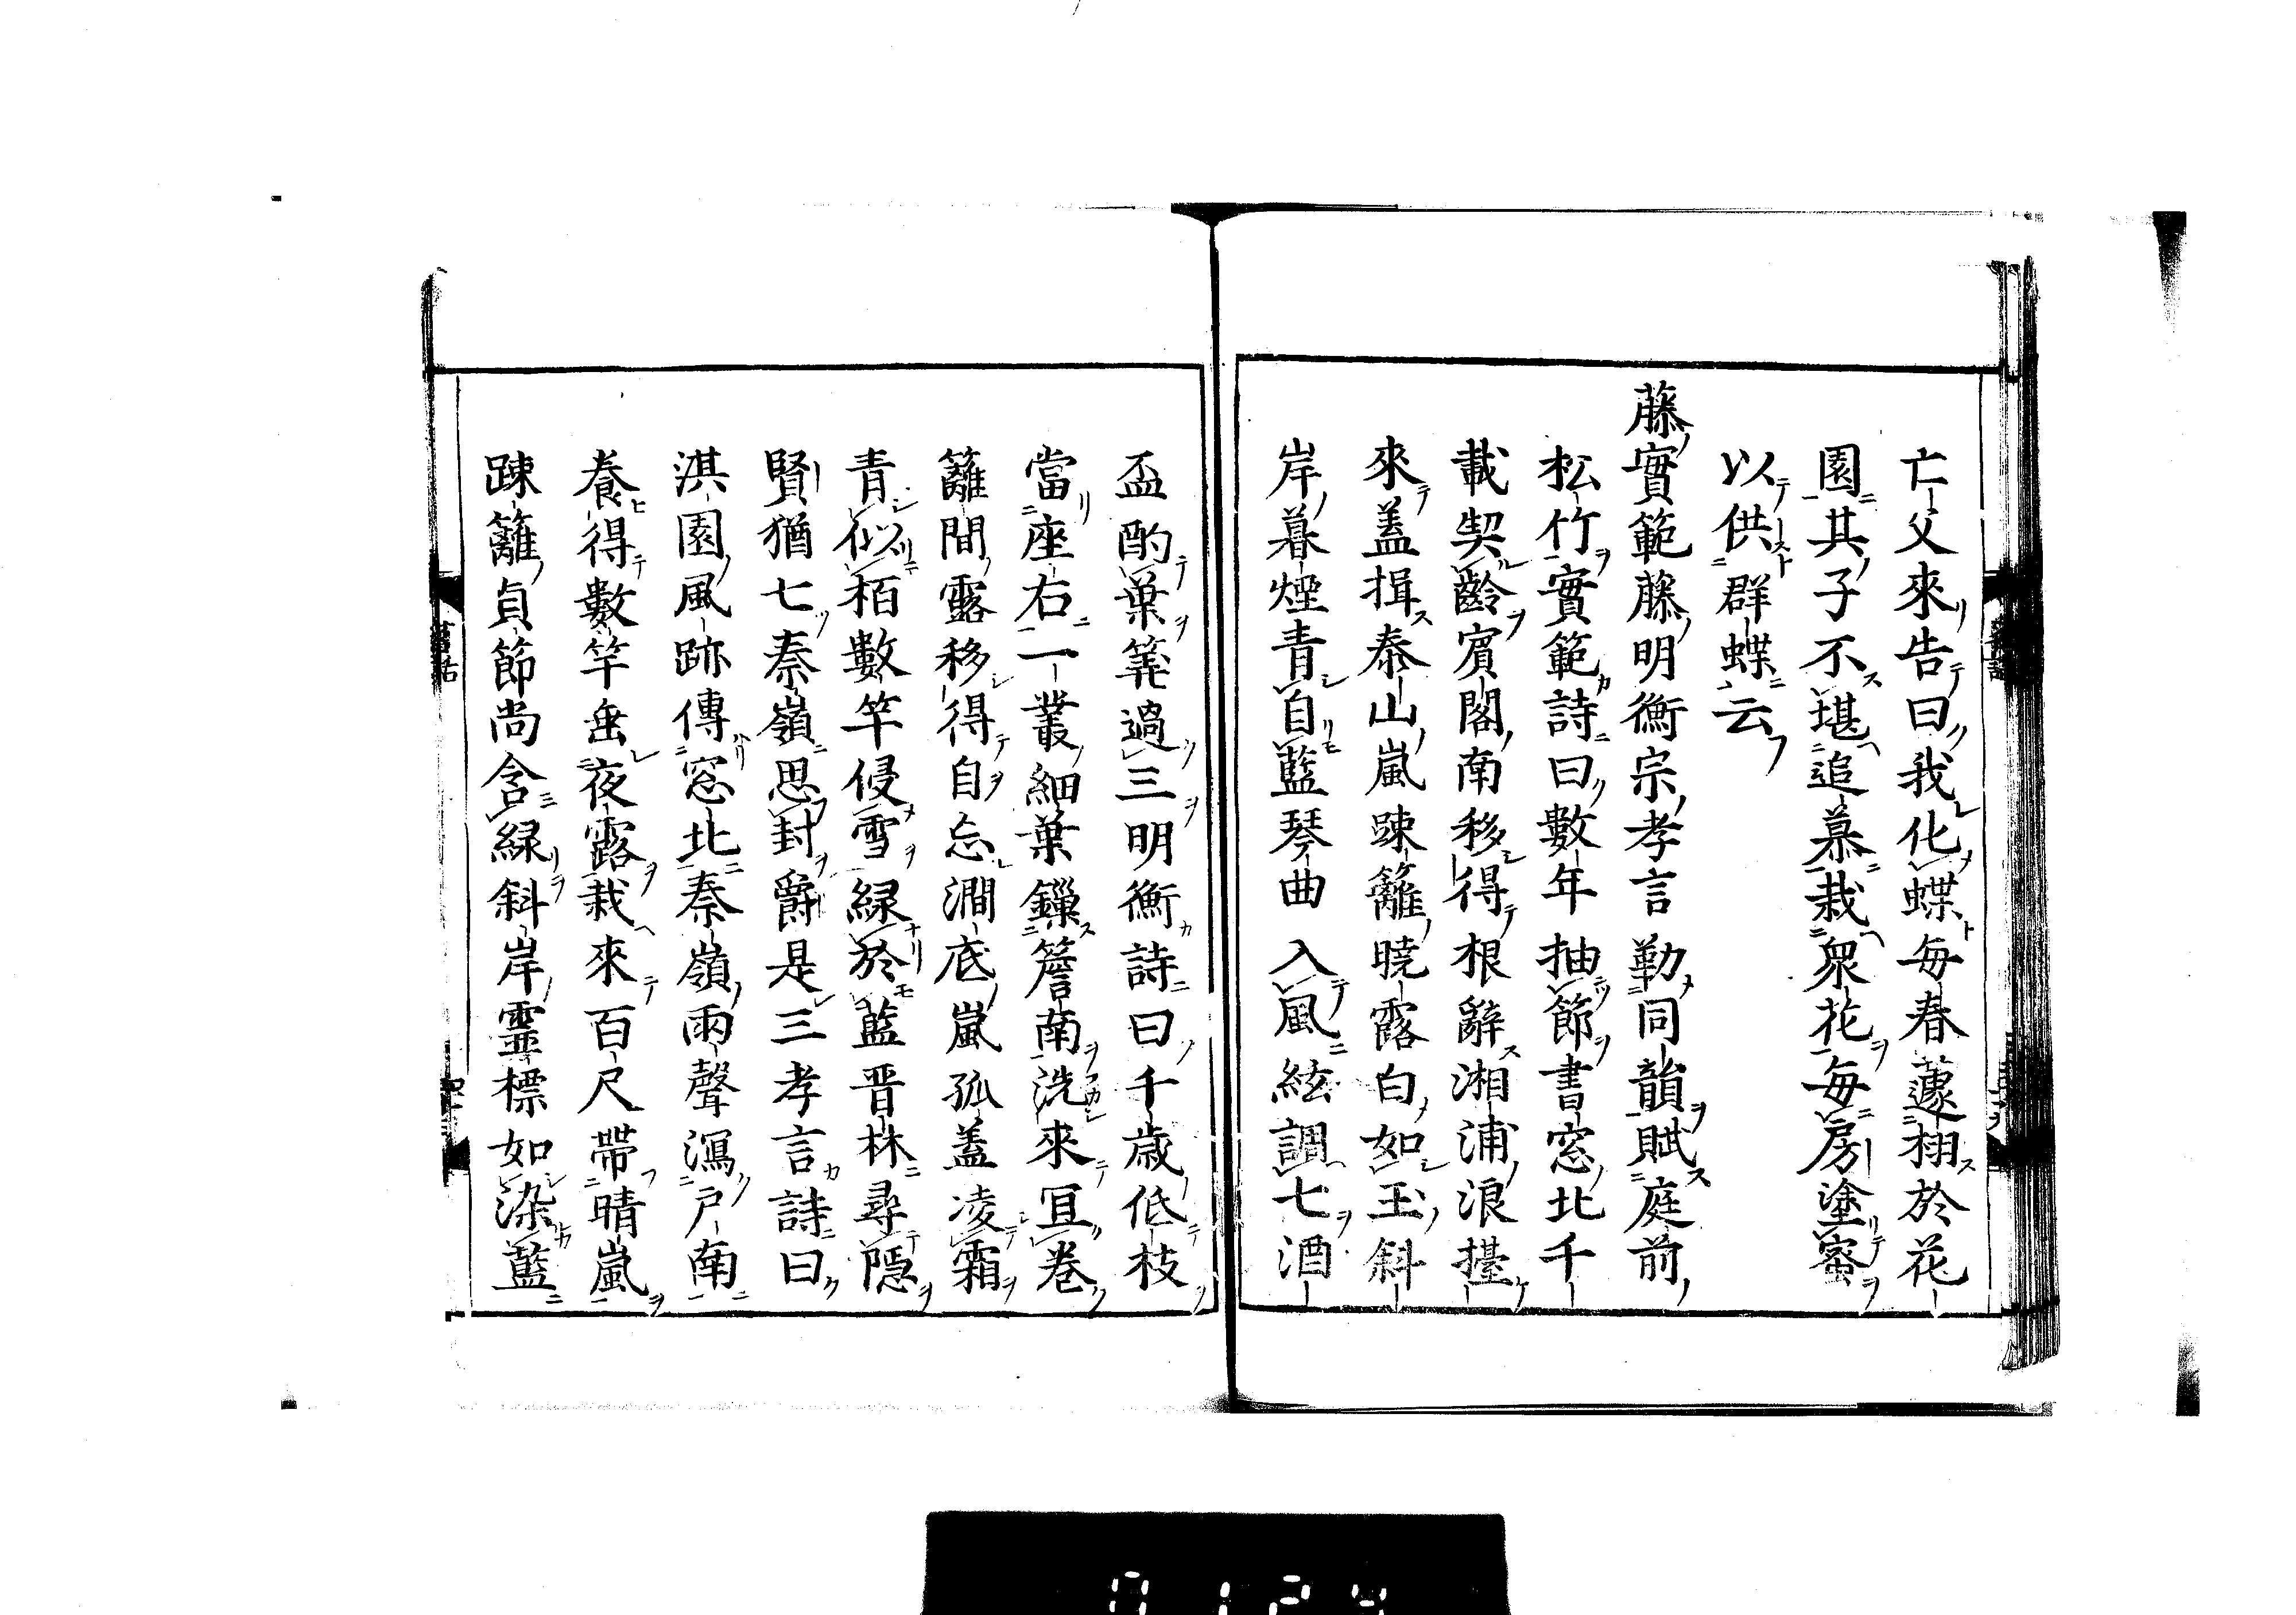 亡父來告曰我化蝶每春蘧栩於花
園其子不堪追慕栽衆花每房塗蜜
以供群蝶云
藤實範藤明衡宗孝言勒同韻賦庭前
松竹實範詩曰數年抽節書窓北千
載契齡賓閣南移得根辭湘浦浪擡
來蓋揖泰山嵐踈籬曉露白如玉斜
岸暮煙青自藍琴曲入風絃調七酒
盃酌葉籌過三明衡詩曰千歲低枝
當座右一叢細葉鏁簷南洗來冝卷
籬間露移得自忘澗底嵐孤蓋凌霜
青似栢數竿侵雪緑於藍晋林尋隠
賢猶七秦嶺思封爵是三孝言詩曰
淇園風跡傳窓北秦嶺雨聲瀉戶南
養得數竿垂夜露栽來百尺帶晴嵐
踈籬貞節尚含緑斜岸霊標如染藍